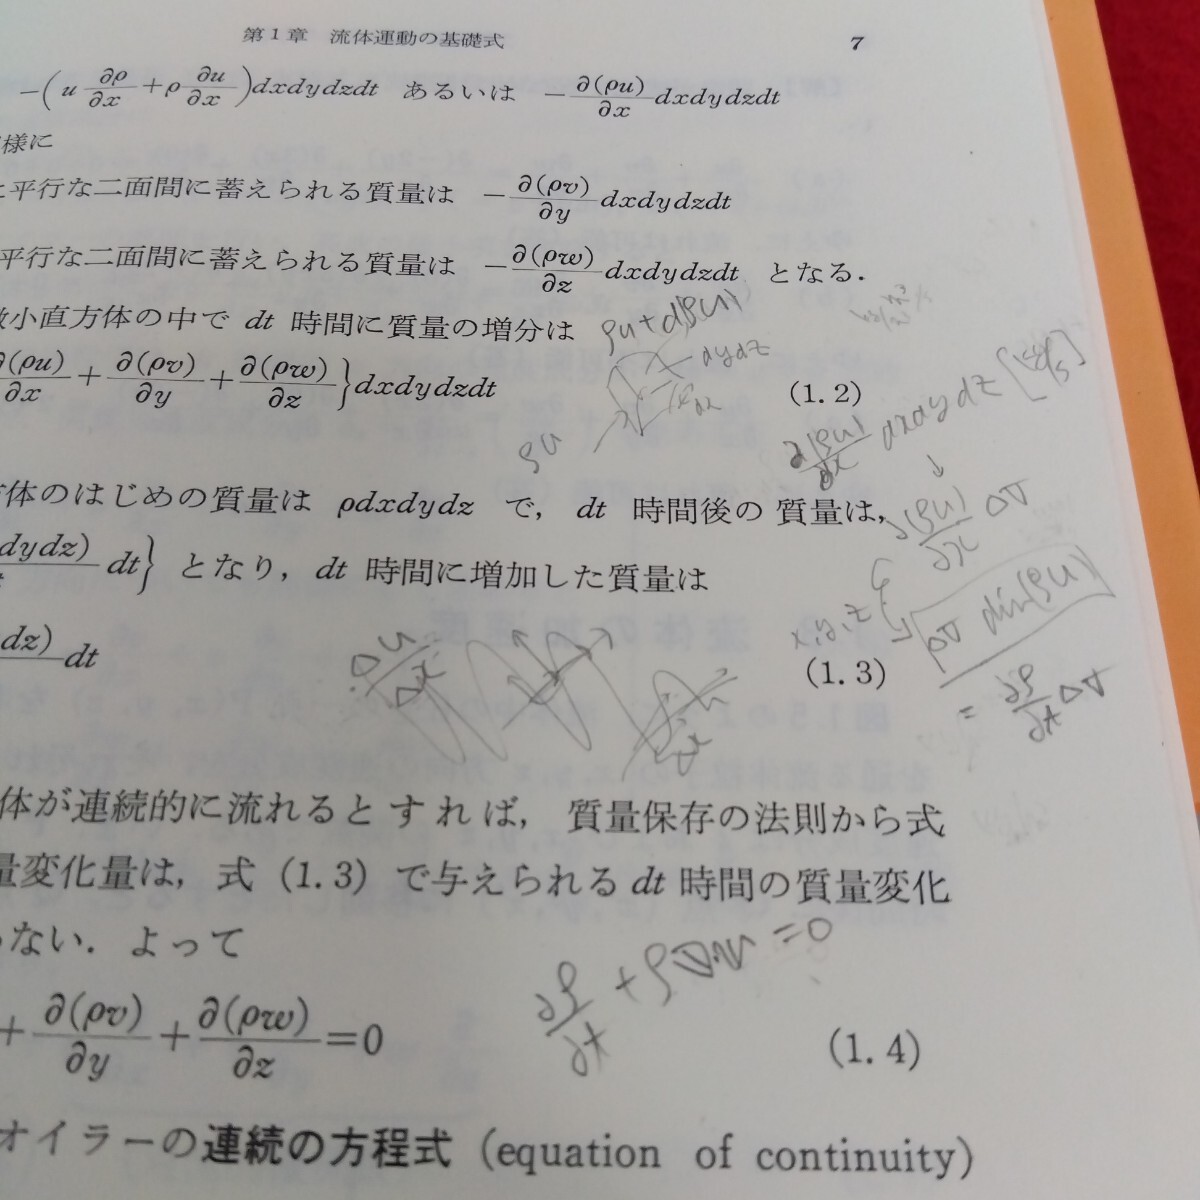 第1章 流体運動の基礎式 7
-(u ∂ρ/∂x + ρ ∂u/∂x)dxdydzdt あるいは -∂(ρu)/∂x dxdydzdt
様に
平行な二面間に蓄えられる質量は -∂(ρv)/∂y dxdydzdt
平行な二面間に蓄えられる質量は -∂(ρw)/∂z dxdydzdt となる.
小直方体の中で dt 時間に質量の増分は
ρu+d(ρu)
dydz
∂(ρu)/∂x + ∂(ρv)/∂y + ∂(ρw)/∂z}dxdydzdt (1.2)
ρu
∂(ρu)/∂x dxdydz [kg/s]
体のはじめの質量は ρdxdydz で, dt 時間後の 質量は,
∂(ρu)/∂x ΔV
dydz) dt} となり, dt 時間に増加した質量は
x,y,z
ΔV div(ρu)
dz) dt (1.3)
Δu/Δx
= ∂ρ/∂t ΔV
体が連続的に流れるとすれば, 質量保存の法則から式
量変化量は, 式 (1.3) で与えられる dt 時間の質量変化
ない. よって
∂ρ/∂t + ρ∇·v = 0
+ ∂(ρv)/∂y + ∂(ρw)/∂z = 0 (1.4)
オイラーの連続の方程式 (equation of continuity)